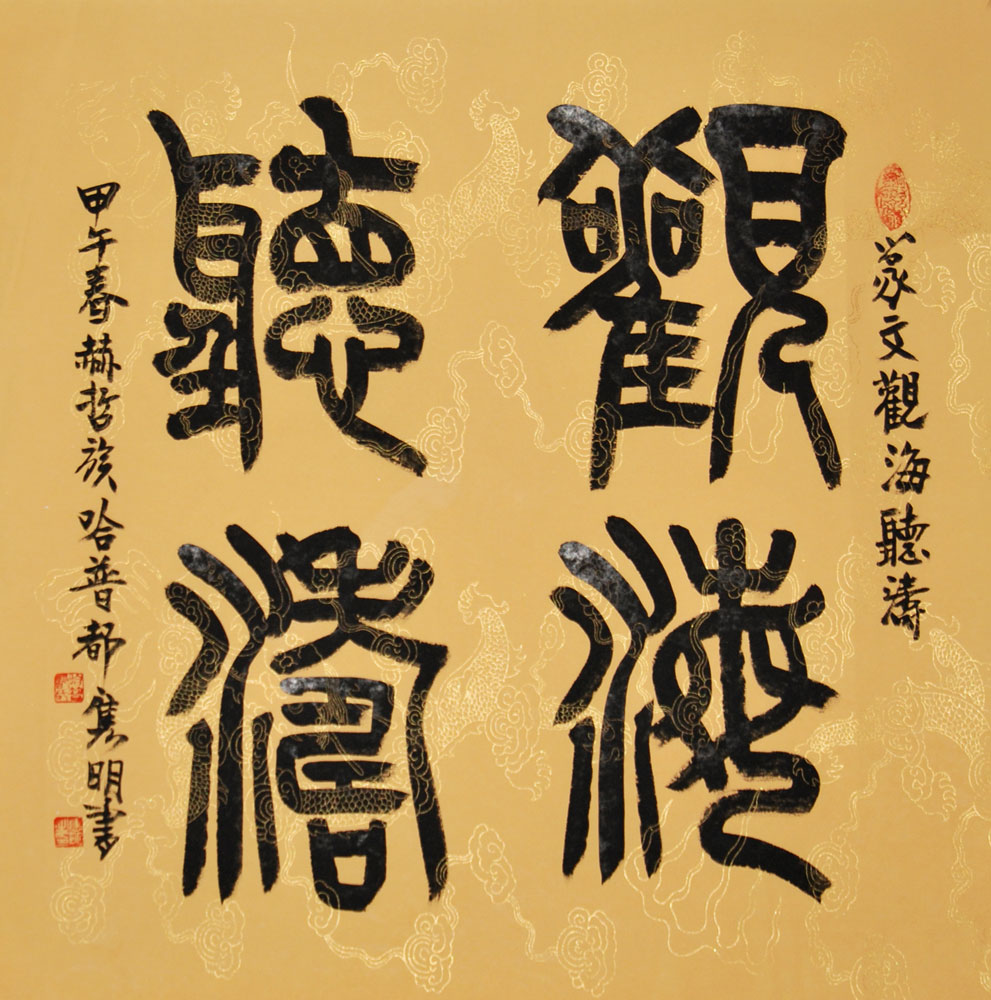 篆文觀海聽濤
觀海
聽濤
甲午春赫哲族哈普都隽明書